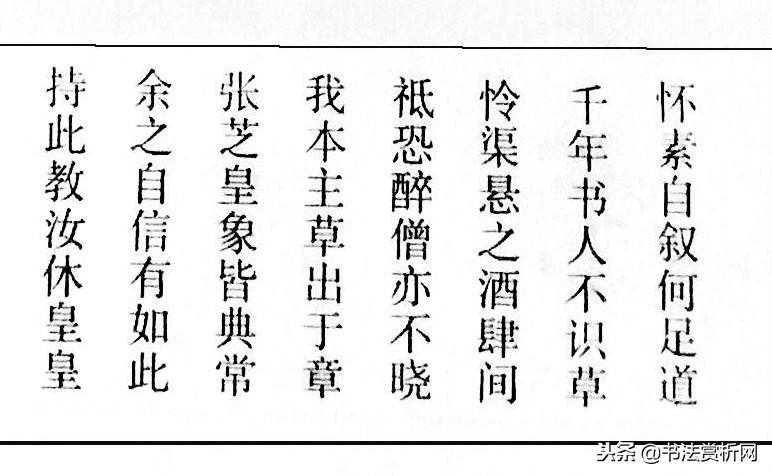 怀素自叙何足道
千年书人不识草
怜渠悬之酒肆间
祗恐醉僧亦不晓
我本主草出于章
张芝皇象皆典常
余之自信有如此
持此教汝休皇皇
头条 @书法赏析网